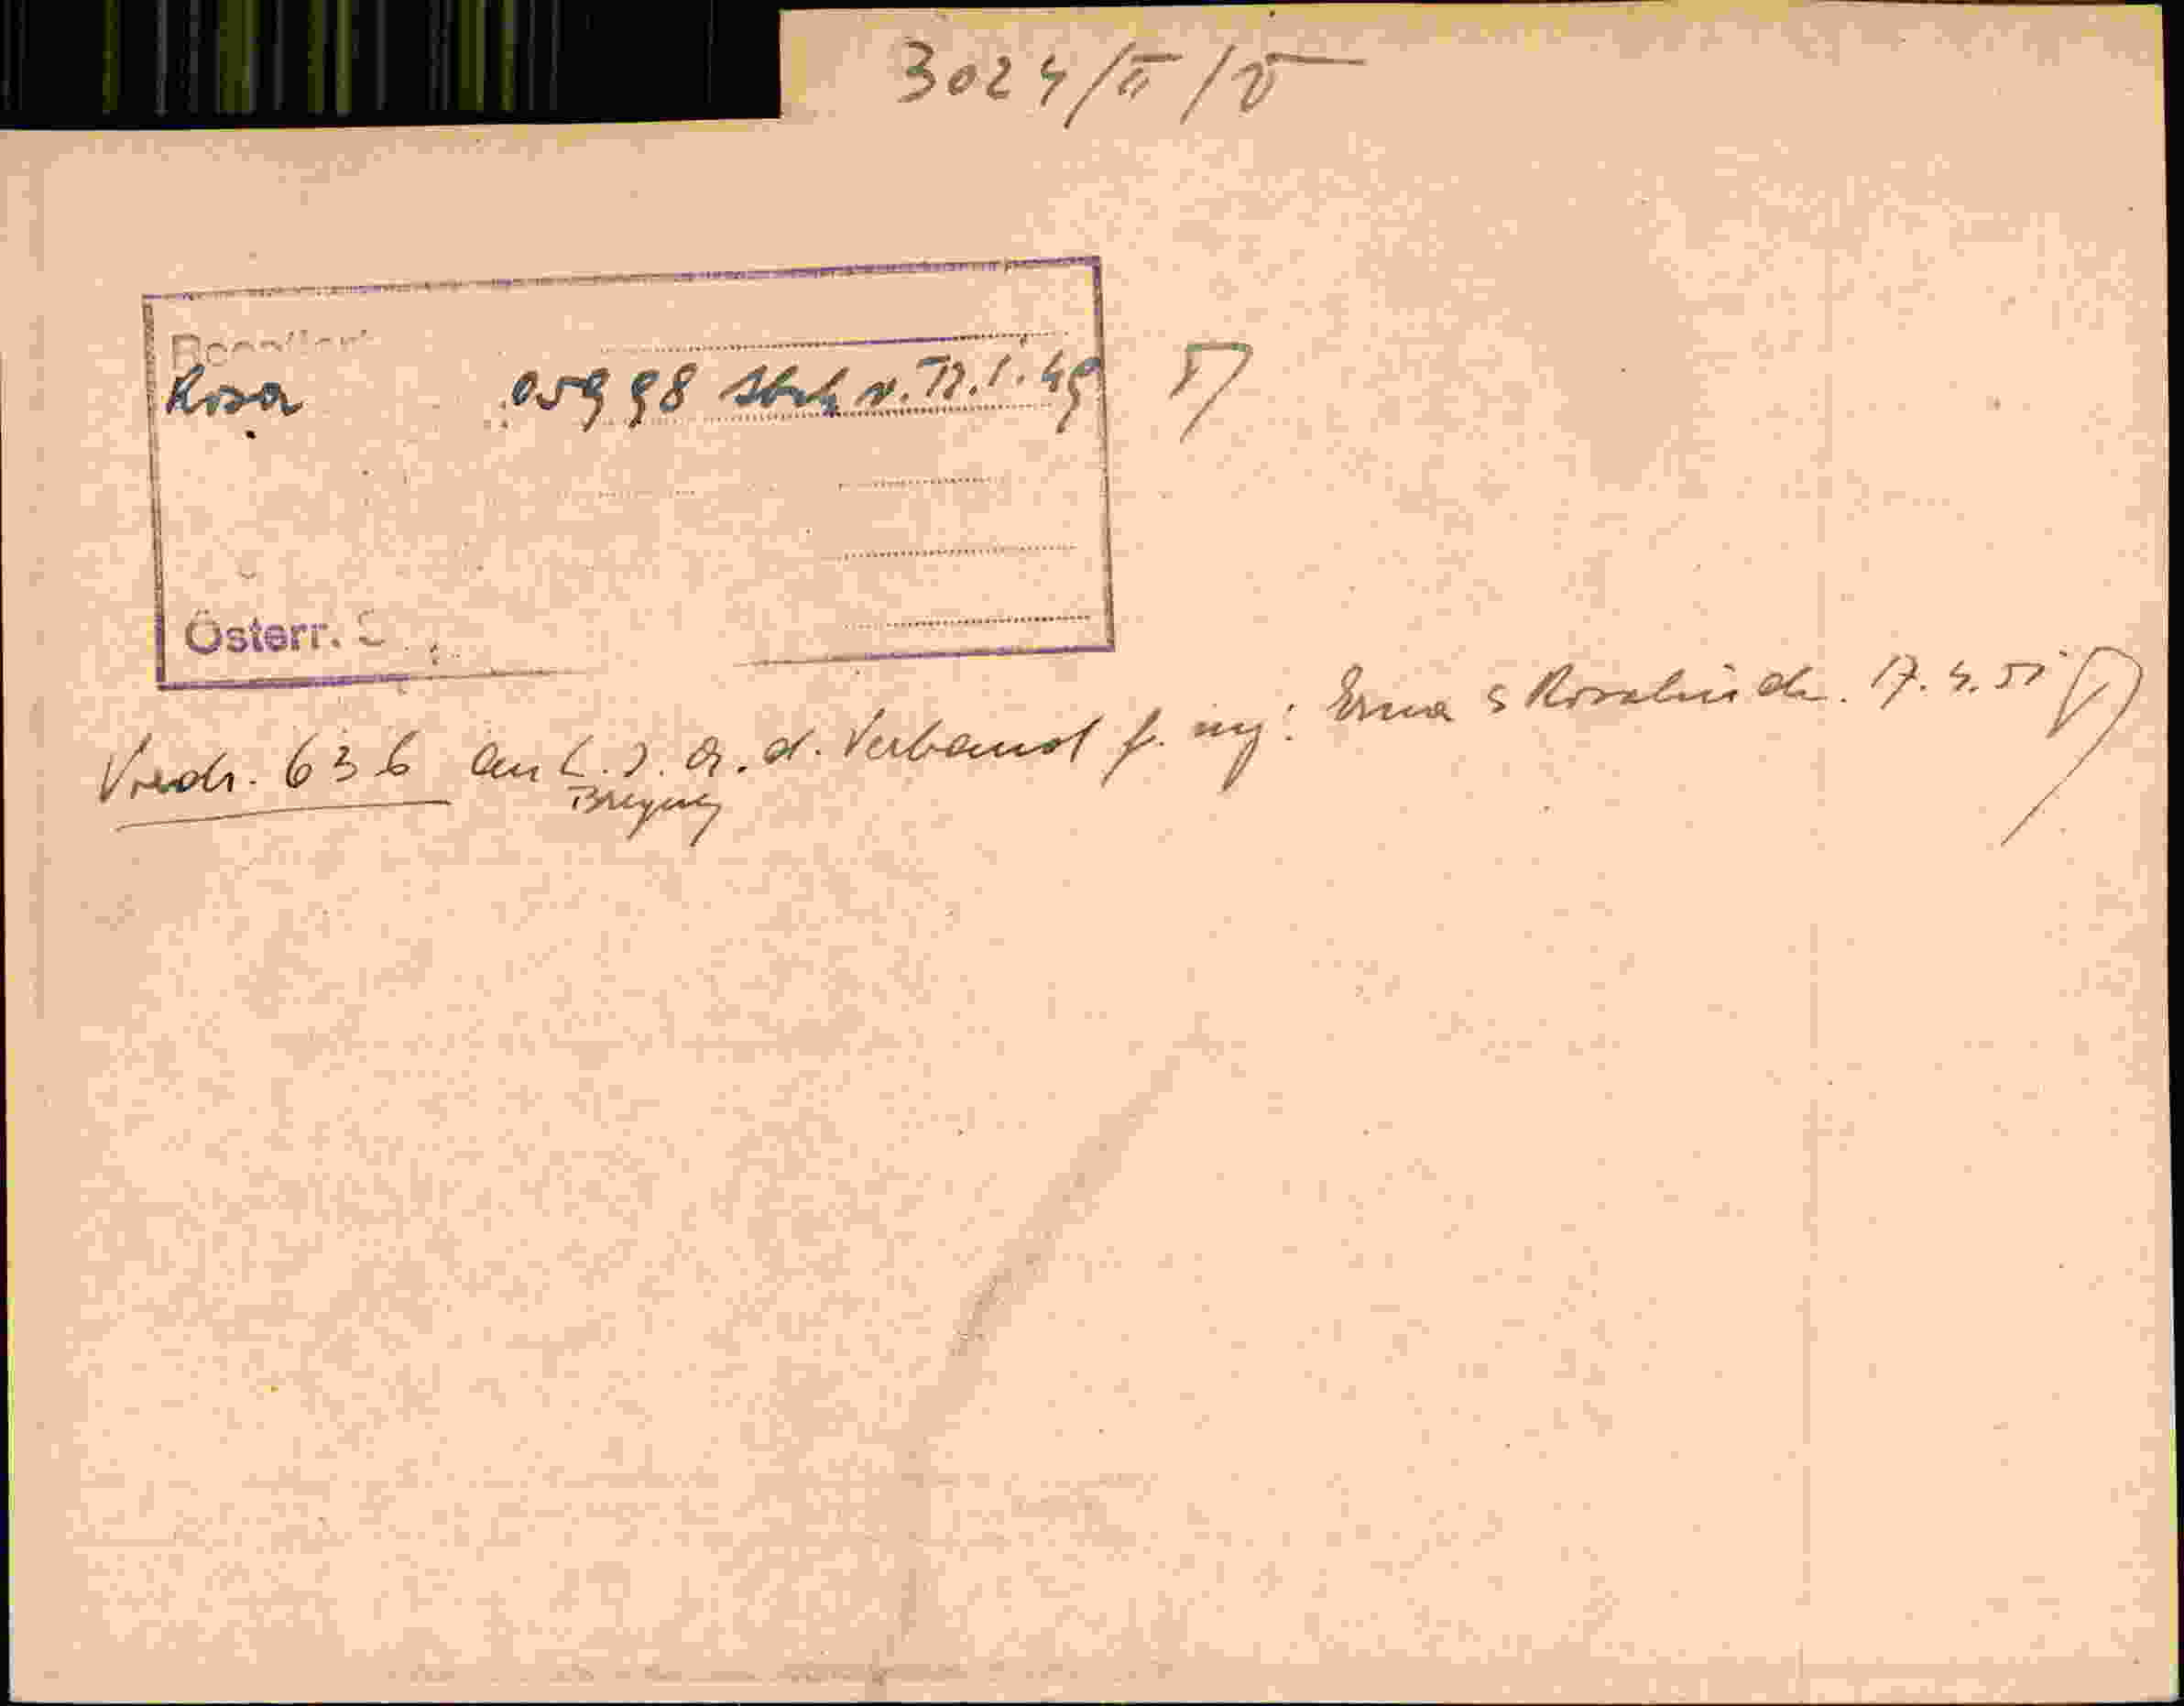 3024/II/V
Rosa 05998 v. 12.1.49
Österr.
Vordr. 636 an L. J. A. d. Verband f. Erna & Rosalinde. 17.4.51
Bregenz